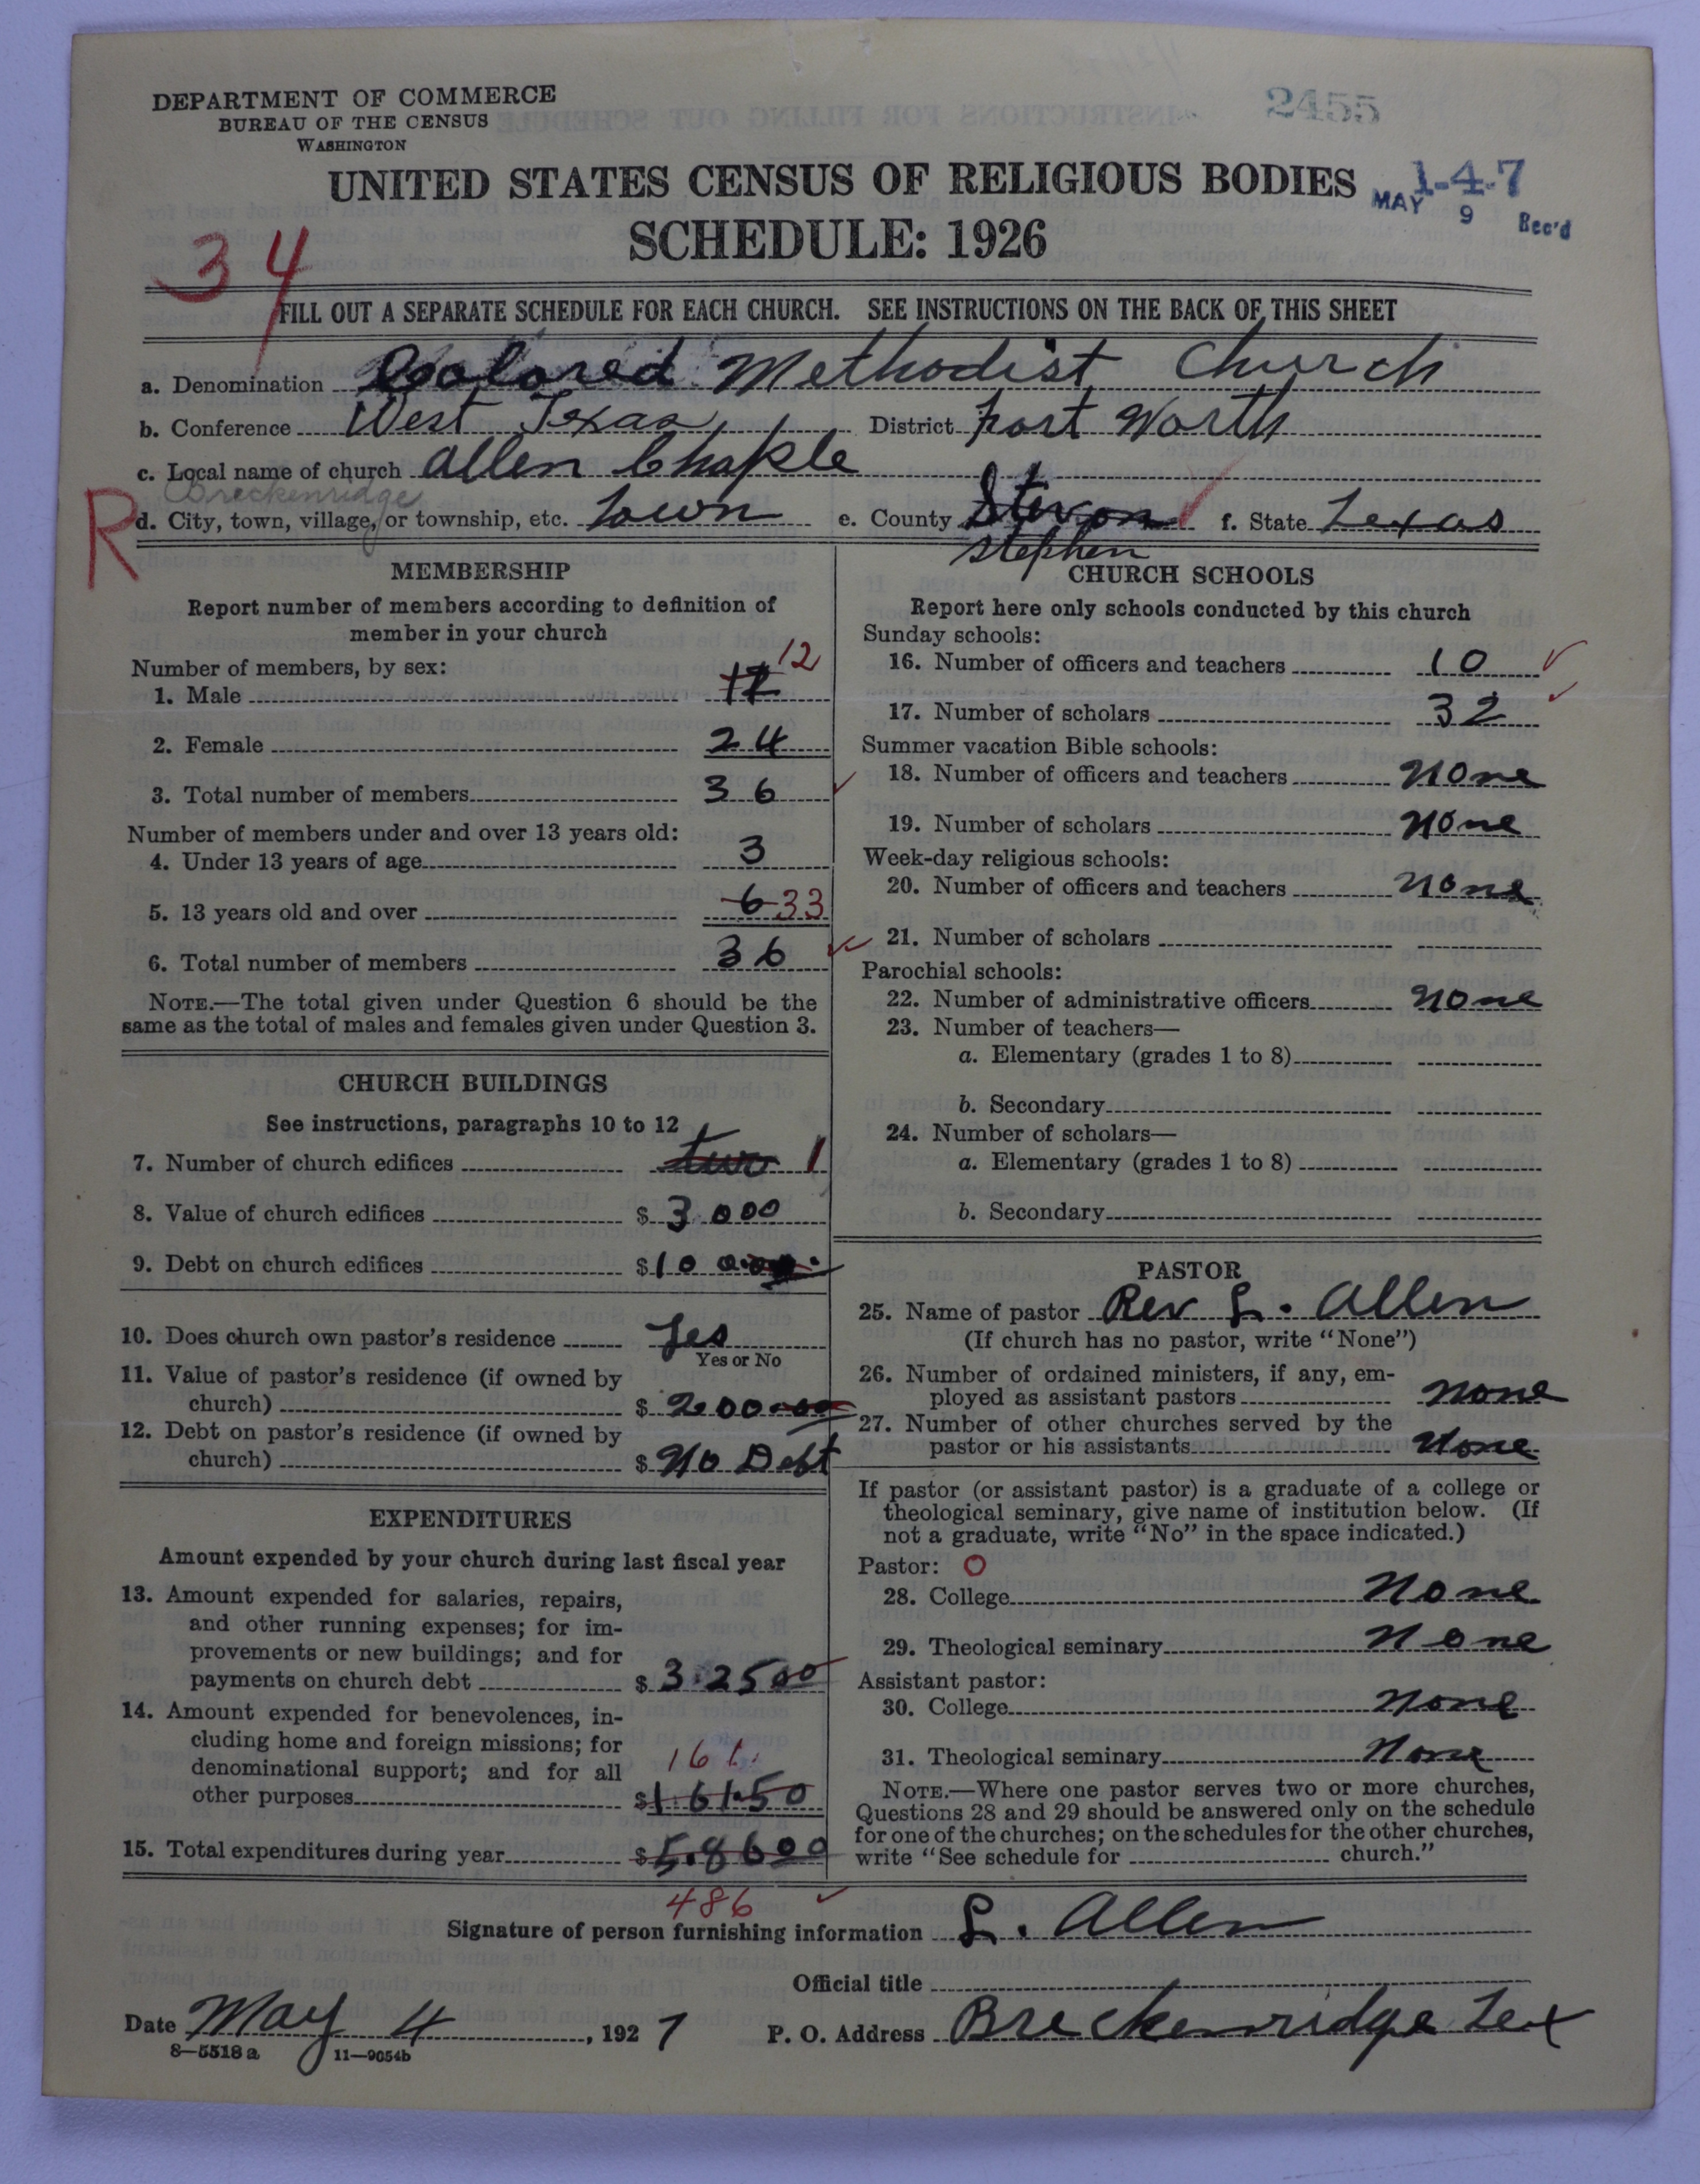 DEPARTMENT OF COMMERCE
BUREAU OF THE CENSUS
WASHINGTON
2455
UNITED STATES CENSUS OF RELIGIOUS BODIES
1-4-7
MAY 9 Rec'd
SCHEDULE: 1926
34
FILL OUT A SEPARATE SCHEDULE FOR EACH CHURCH. SEE INSTRUCTIONS ON THE BACK OF THIS SHEET
a. Denomination Colored Methodist Church
b. Conference West Texas District Fort Worth
c. Local name of church Allen Chaple
Breckenridge
R d. City, town, village, or township, etc. Town e. County Stevon f. State Texas
Stephen
MEMBERSHIP
Report number of members according to definition of
member in your church
Number of members, by sex:
12
1. Male 12
2. Female 24
3. Total number of members 36
Number of members under and over 13 years old:
4. Under 13 years of age 3
5. 13 years old and over 6 33
6. Total number of members 36
NOTE.—The total given under Question 6 should be the
same as the total of males and females given under Question 3.
CHURCH BUILDINGS
See instructions, paragraphs 10 to 12
7. Number of church edifices two 1
8. Value of church edifices $ 3000
9. Debt on church edifices $ 100
10. Does church own pastor's residence Yes
Yes or No
11. Value of pastor's residence (if owned by
church) $ 200.00
12. Debt on pastor's residence (if owned by
church) $ No Debt
EXPENDITURES
Amount expended by your church during last fiscal year
13. Amount expended for salaries, repairs,
and other running expenses; for im-
provements or new buildings; and for
payments on church debt $ 3.2500
14. Amount expended for benevolences, in-
cluding home and foreign missions; for
denominational support; and for all
161.
other purposes $ 161.50
15. Total expenditures during year $ 5.8600
486
CHURCH SCHOOLS
Report here only schools conducted by this church
Sunday schools:
16. Number of officers and teachers 10
17. Number of scholars 32
Summer vacation Bible schools:
18. Number of officers and teachers none
19. Number of scholars none
Week-day religious schools:
20. Number of officers and teachers none
21. Number of scholars
Parochial schools:
22. Number of administrative officers none
23. Number of teachers—
a. Elementary (grades 1 to 8)
b. Secondary
24. Number of scholars—
a. Elementary (grades 1 to 8)
b. Secondary
PASTOR
25. Name of pastor Rev L. Allen
(If church has no pastor, write "None")
26. Number of ordained ministers, if any, em-
ployed as assistant pastors none
27. Number of other churches served by the
pastor or his assistants None
If pastor (or assistant pastor) is a graduate of a college or
theological seminary, give name of institution below. (If
not a graduate, write "No" in the space indicated.)
Pastor: O
28. College None
29. Theological seminary None
Assistant pastor:
30. College none
31. Theological seminary None
NOTE.—Where one pastor serves two or more churches,
Questions 28 and 29 should be answered only on the schedule
for one of the churches; on the schedules for the other churches,
write "See schedule for church."
Signature of person furnishing information L. Allen
Official title
Date May 4, 1927 P. O. Address Breckenridge Tex
8—5518 a 11—9054b